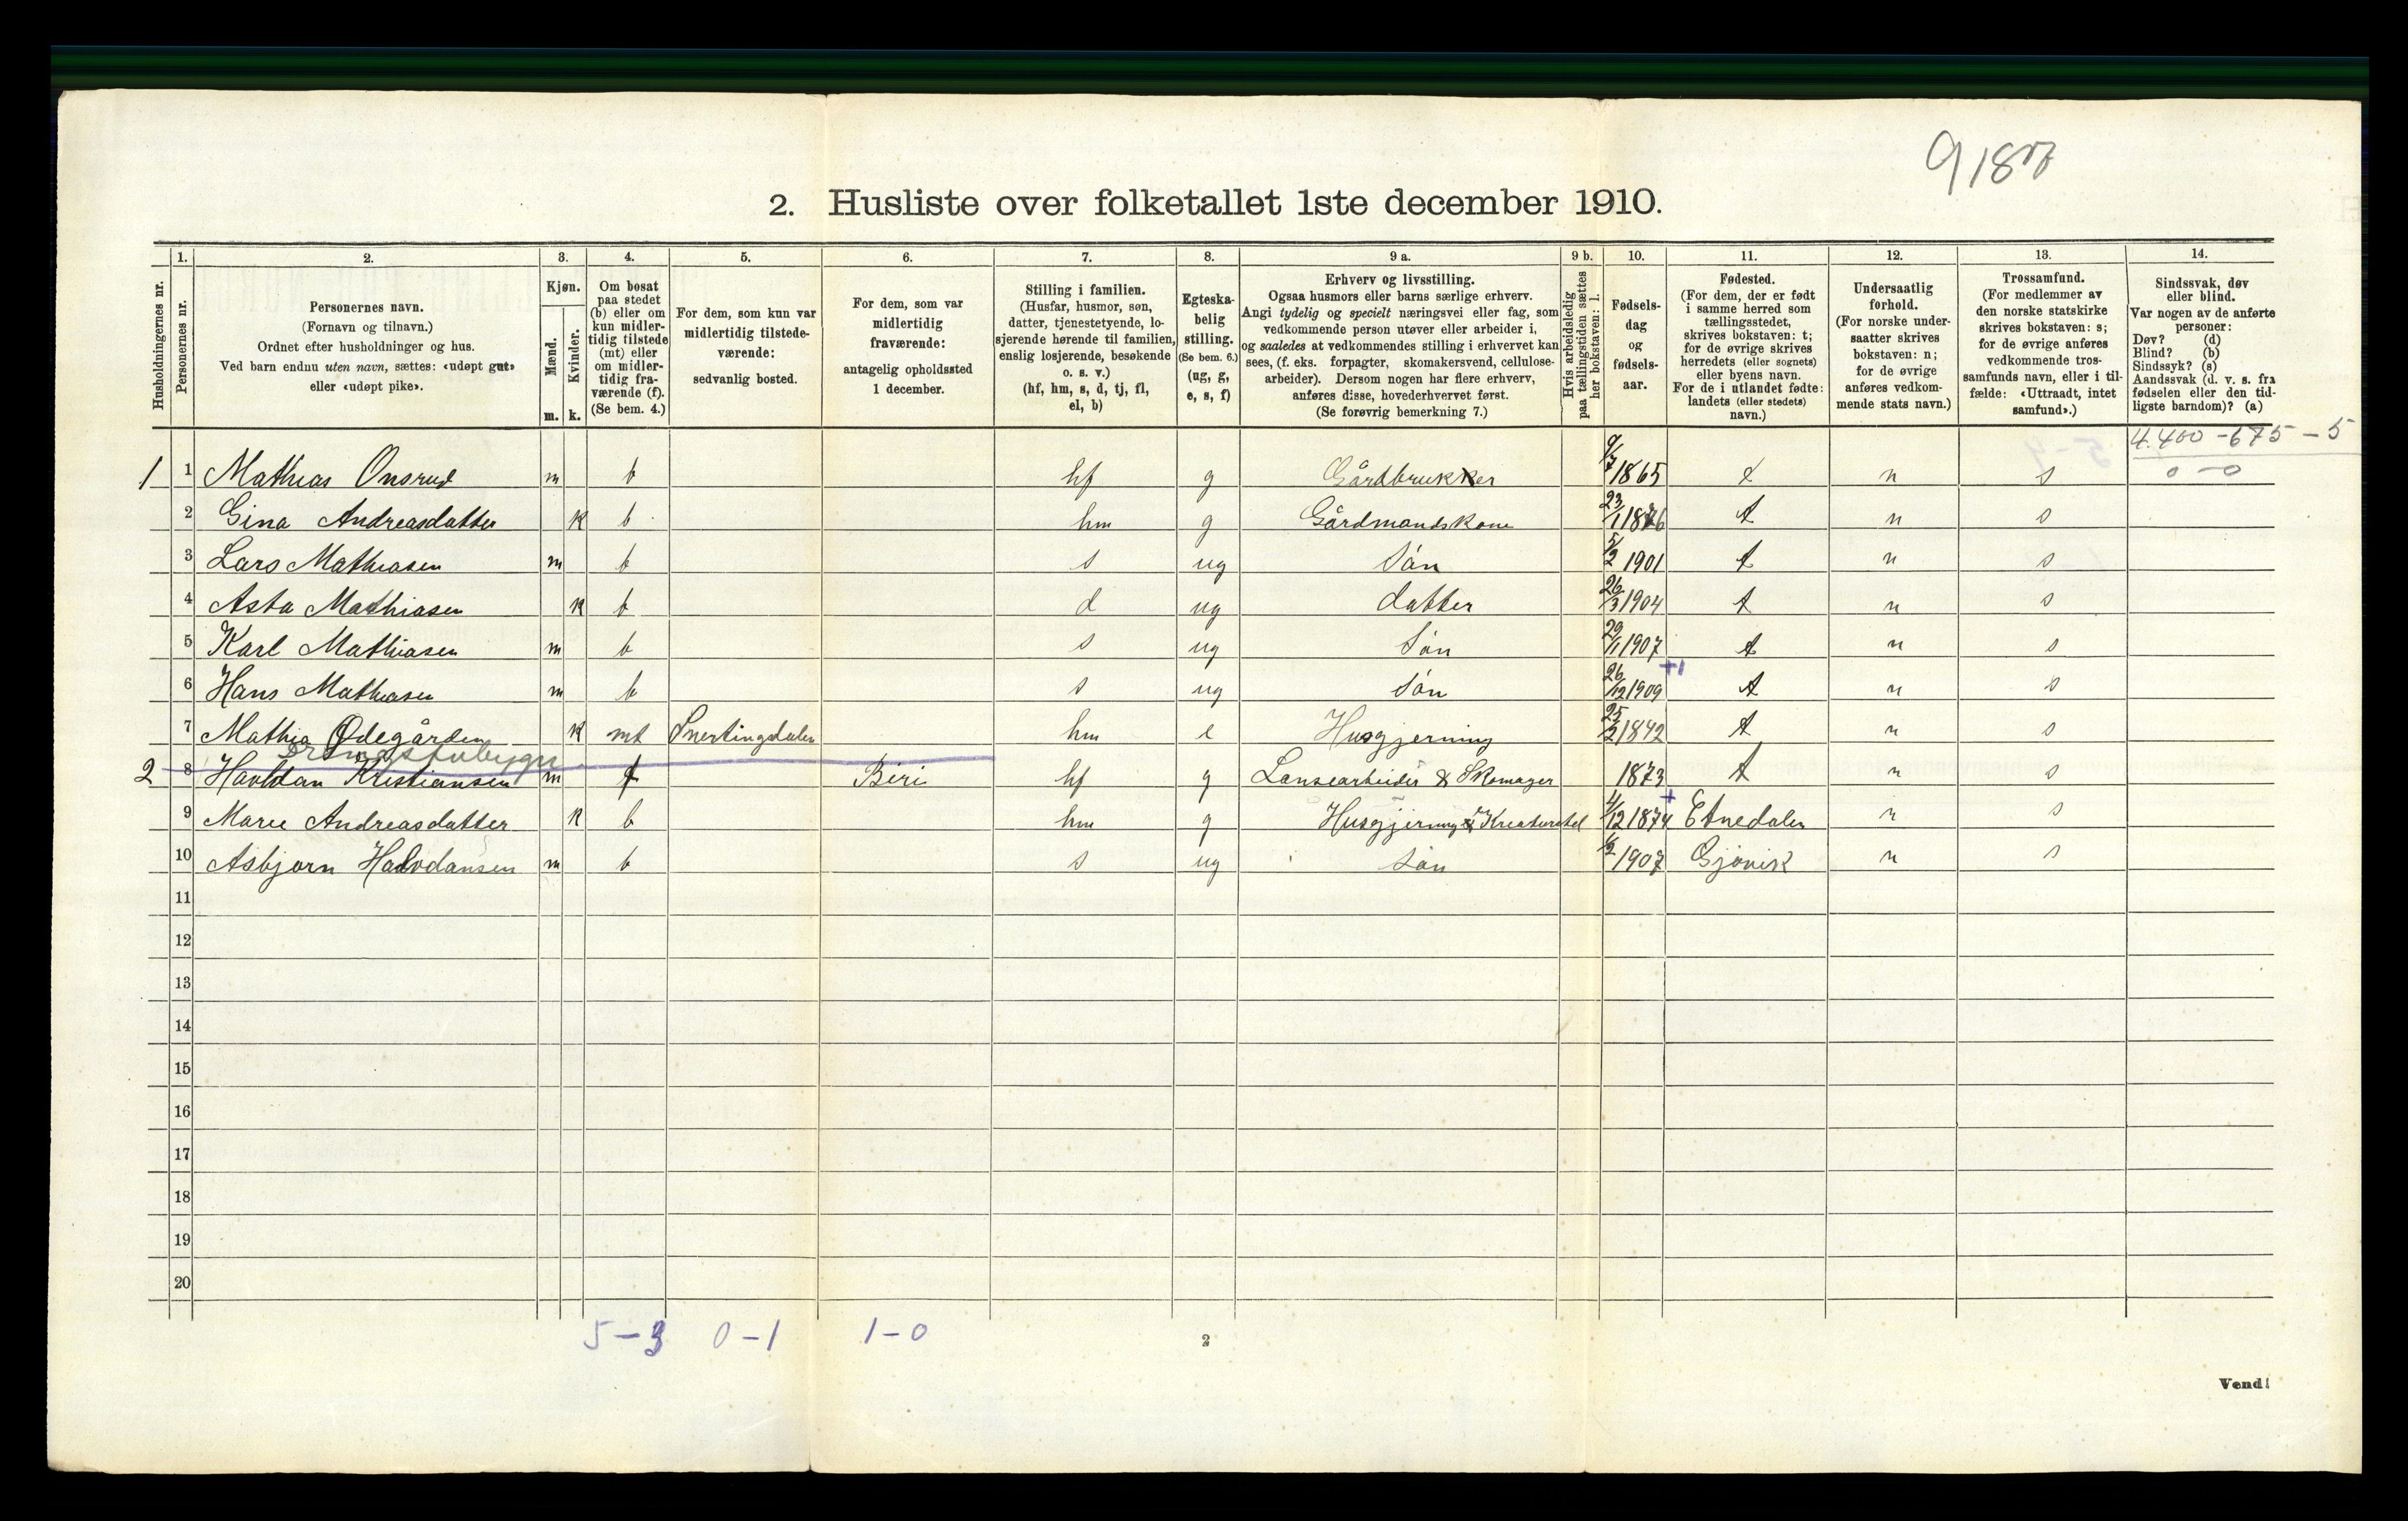 9187
2. Husliste over folketallet 1ste december 1910.
Husholdningernes nr.
1.
Personernes nr.
2.
Personernes navn.
(Fornavn og tilnavn.)
Ordnet efter husholdninger og hus.
Ved barn endnu uten navn, sættes: «udøpt gut»
eller «udøpt pike».
3.
Kjøn.
Mænd.
m.
Kvinder.
k.
4.
Om bosat
paa stedet
(b) eller om
kun midler-
tidig tilstede
(mt) eller
om midler-
tidig fra-
værende (f).
(Se bem. 4.)
5.
For dem, som kun var
midlertidig tilstede-
værende:
sedvanlig bosted.
6.
For dem, som var
midlertidig
fraværende:
antagelig opholdssted
1 december.
7.
Stilling i familien.
(Husfar, husmor, søn,
datter, tjenestetyende, lo-
sjerende hørende til familien,
enslig losjerende, besøkende
o. s. v.)
(hf, hm, s, d, tj, fl,
el, b)
8.
Egteska-
belig
stilling.
(Se bem. 6.)
(ug, g,
e, s, f)
9 a.
Erhverv og livsstilling.
Ogsaa husmors eller barns særlige erhverv.
Angi tydelig og specielt næringsvei eller fag, som
vedkommende person utøver eller arbeider i,
og saaledes at vedkommendes stilling i erhvervet kan
sees, (f. eks. forpagter, skomakersvend, cellulose-
arbeider). Dersom nogen har flere erhverv,
anføres disse, hovederhvervet først.
(Se forøvrig bemerkning 7.)
9 b.
Hvis arbeidsledig
paa tællingstiden sættes
her bokstaven: l.
10.
Fødsels-
dag
og
fødsels-
aar.
11.
Fødested.
(For dem, der er født
i samme herred som
tællingsstedet,
skrives bokstaven: t;
for de øvrige skrives
herredets (eller sognets)
eller byens navn.
For de i utlandet fødte:
landets (eller stedets)
navn.)
12.
Undersaatlig
forhold.
(For norske under-
saatter skrives
bokstaven: n;
for de øvrige
anføres vedkom-
mende stats navn.)
13.
Trossamfund.
(For medlemmer av
den norske statskirke
skrives bokstaven: s;
for de øvrige anføres
vedkommende tros-
samfunds navn, eller i til-
fælde: «Uttraadt, intet
samfund».)
14.
Sindssvak, døv
eller blind.
Var nogen av de anførte
personer:
Døv? (d)
Blind? (b)
Sindssyk? (s)
Aandssvak (d. v. s. fra
fødselen eller den tid-
ligste barndom)? (a)
4.400 - 675 - 5
0 - 0
1 1 Mathias Onsrud m b hf g Gårdbrukker 9/7 1865 t n s
2 Gina Andreasdatter k b hm g Gårdmandskone 23/1 1876 t n s
3 Lars Mathiasen m b s ug Søn 5/2 1901 t n s
4 Asta Mathiasen k b d ug datter 26/3 1904 t n s
5 Karl Mathiasen m b s ug Søn 29/1 1907 t n s
+1
6 Hans Mathiasen m b s ug Søn 26/12 1909 t n s
7 Mathia Ødegården k mt Snertingdalen hm e Husgjerning 25/2 1842 t n s
2 8 Havldan Kristiansen m f Biri hf g Lansearbeider & Skomager 1873 t n s
+
9 Marie Andreasdatter k b hm g Husgjerning & Kreaturstel 4/12 1874 Etnedalen n s
10 Asbjørn Halvdansen m b s ug Søn 1/2 1907 Gjøvik n s
11
12
13
14
15
16
17
18
19
20
5 - 3 0 - 1 1 - 0
2
Vend!